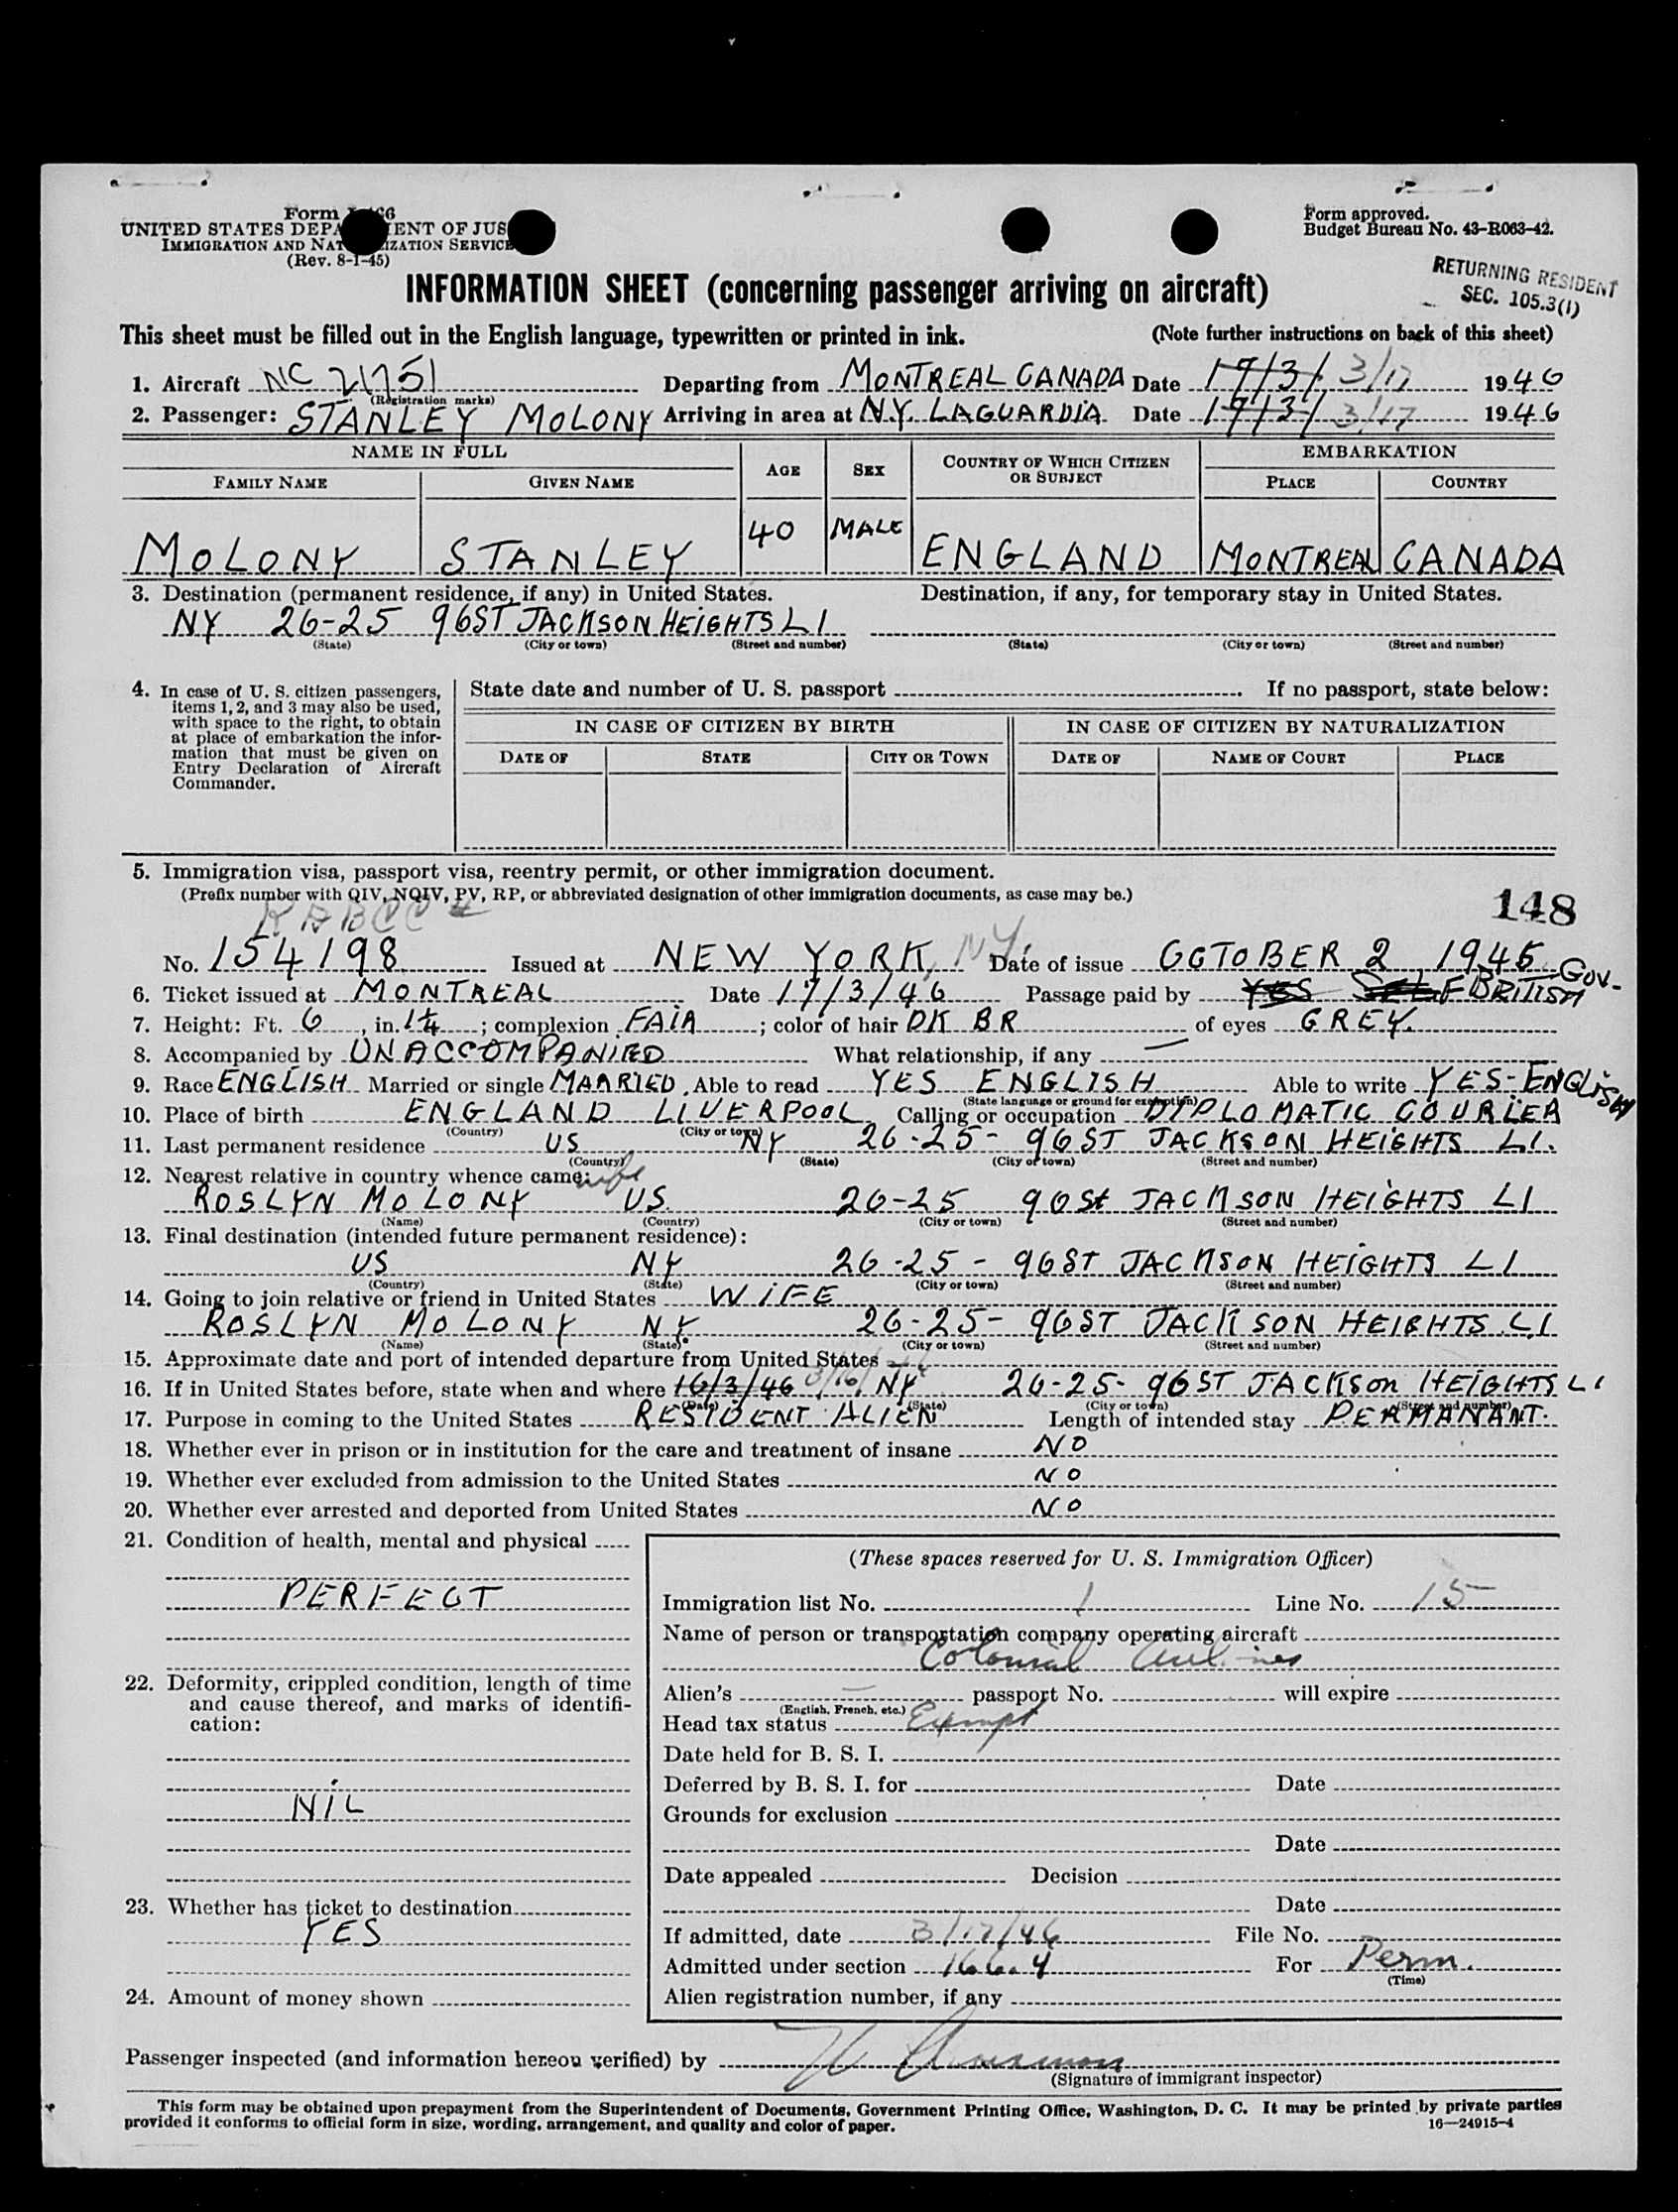 Form I-466
UNITED STATES DEPARTMENT OF JUSTICE
IMMIGRATION AND NATURALIZATION SERVICE
(Rev. 8-1-45)
Form approved.
Budget Bureau No. 43-R063-42.
INFORMATION SHEET (concerning passenger arriving on aircraft)
RETURNING RESIDENT
SEC. 105.3(1)
This sheet must be filled out in the English language, typewritten or printed in ink. (Note further instructions on back of this sheet)
1. Aircraft NC 21751 Departing from MONTREAL CANADA Date 17/3/ 3/17 1946
(Registration marks)
2. Passenger: STANLEY MOLONY Arriving in area at N.Y. LAGUARDIA Date 17/3/ 3/17 1946
NAME IN FULL AGE SEX COUNTRY OF WHICH CITIZEN OR SUBJECT EMBARKATION
FAMILY NAME GIVEN NAME PLACE COUNTRY
MOLONY STANLEY 40 MALE ENGLAND MONTREAL CANADA
3. Destination (permanent residence, if any) in United States. Destination, if any, for temporary stay in United States.
NY 26-25 96ST JACKSON HEIGHTS L I
(State) (City or town) (Street and number) (State) (City or town) (Street and number)
4. In case of U. S. citizen passengers, items 1, 2, and 3 may also be used, with space to the right, to obtain at place of embarkation the information that must be given on Entry Declaration of Aircraft Commander.
State date and number of U. S. passport If no passport, state below:
IN CASE OF CITIZEN BY BIRTH IN CASE OF CITIZEN BY NATURALIZATION
DATE OF STATE CITY OR TOWN DATE OF NAME OF COURT PLACE
5. Immigration visa, passport visa, reentry permit, or other immigration document.
(Prefix number with QIV, NQIV, PV, RP, or abbreviated designation of other immigration documents, as case may be.)
148
No. 154198 Issued at NEW YORK, N.Y. Date of issue OCTOBER 2 1945
6. Ticket issued at MONTREAL Date 17/3/46 Passage paid by YES SELF BRITISH GOV-
7. Height: Ft. 6, in. 1¼; complexion FAIR; color of hair DK BR of eyes GREY.
8. Accompanied by UNACCOMPANIED What relationship, if any —
9. Race ENGLISH Married or single MARRIED Able to read YES ENGLISH Able to write YES-ENGLISH
(State language or ground for exemption)
10. Place of birth ENGLAND LIVERPOOL Calling or occupation DIPLOMATIC COURIER
(Country) (City or town)
11. Last permanent residence US NY 26-25- 96ST JACKSON HEIGHTS L I.
(Country) (State) (City or town) (Street and number)
12. Nearest relative in country whence came: wife
ROSLYN MOLONY US. 26-25 96St JACKSON HEIGHTS L I
(Name) (Country) (City or town) (Street and number)
13. Final destination (intended future permanent residence):
US NY 26-25- 96ST JACKSON HEIGHTS L I
(Country) (State) (City or town) (Street and number)
14. Going to join relative or friend in United States WIFE
ROSLYN MOLONY NY 26-25- 96ST JACKSON HEIGHTS L I
(Name) (State) (City or town) (Street and number)
15. Approximate date and port of intended departure from United States
16. If in United States before, state when and where 16/3/46 3/16/46 NY 26-25- 96ST JACKSON HEIGHTS L I
(Date) (State) (City or town) (Street and number)
17. Purpose in coming to the United States RESIDENT ALIEN Length of intended stay PERMANANT.
18. Whether ever in prison or in institution for the care and treatment of insane NO
19. Whether ever excluded from admission to the United States NO
20. Whether ever arrested and deported from United States NO
21. Condition of health, mental and physical
PERFECT
22. Deformity, crippled condition, length of time and cause thereof, and marks of identification:
NIL
23. Whether has ticket to destination
YES
24. Amount of money shown
(These spaces reserved for U. S. Immigration Officer)
Immigration list No. 1 Line No. 15
Name of person or transportation company operating aircraft
Colonial Airlines
Alien's — passport No. will expire
(English, French, etc.)
Head tax status Exempt
Date held for B. S. I.
Deferred by B. S. I. for Date
Grounds for exclusion
Date
Date appealed Decision
Date
If admitted, date 3/17/46 File No.
Admitted under section 166.4 For Perm.
(Time)
Alien registration number, if any
Passenger inspected (and information hereon verified) by
(Signature of immigrant inspector)
This form may be obtained upon prepayment from the Superintendent of Documents, Government Printing Office, Washington, D. C. It may be printed by private parties
provided it conforms to official form in size, wording, arrangement, and quality and color of paper. 16—24915-4